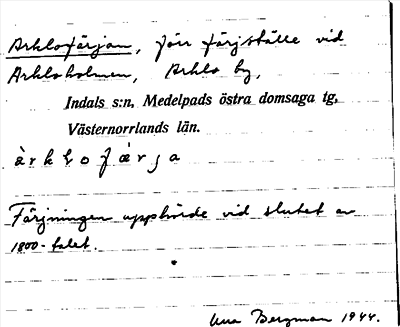 Arklofärjan, förr färjställe vid
Arkloholmen, Arklo by,
Indals s:n, Medelpads östra domsaga tg,
Västernorrlands län.
Färjningen upphörde vid slutet av
1800-talet.
Bergman 1944.